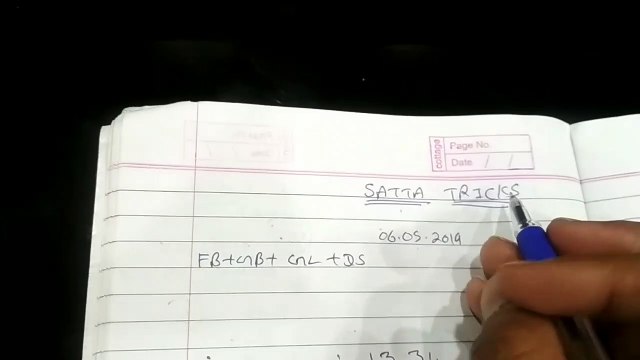 cottage
Page No.
Date / /
SATTA TRICKS
06.05.2019
FB+GZB+ GZL +DS
13 34